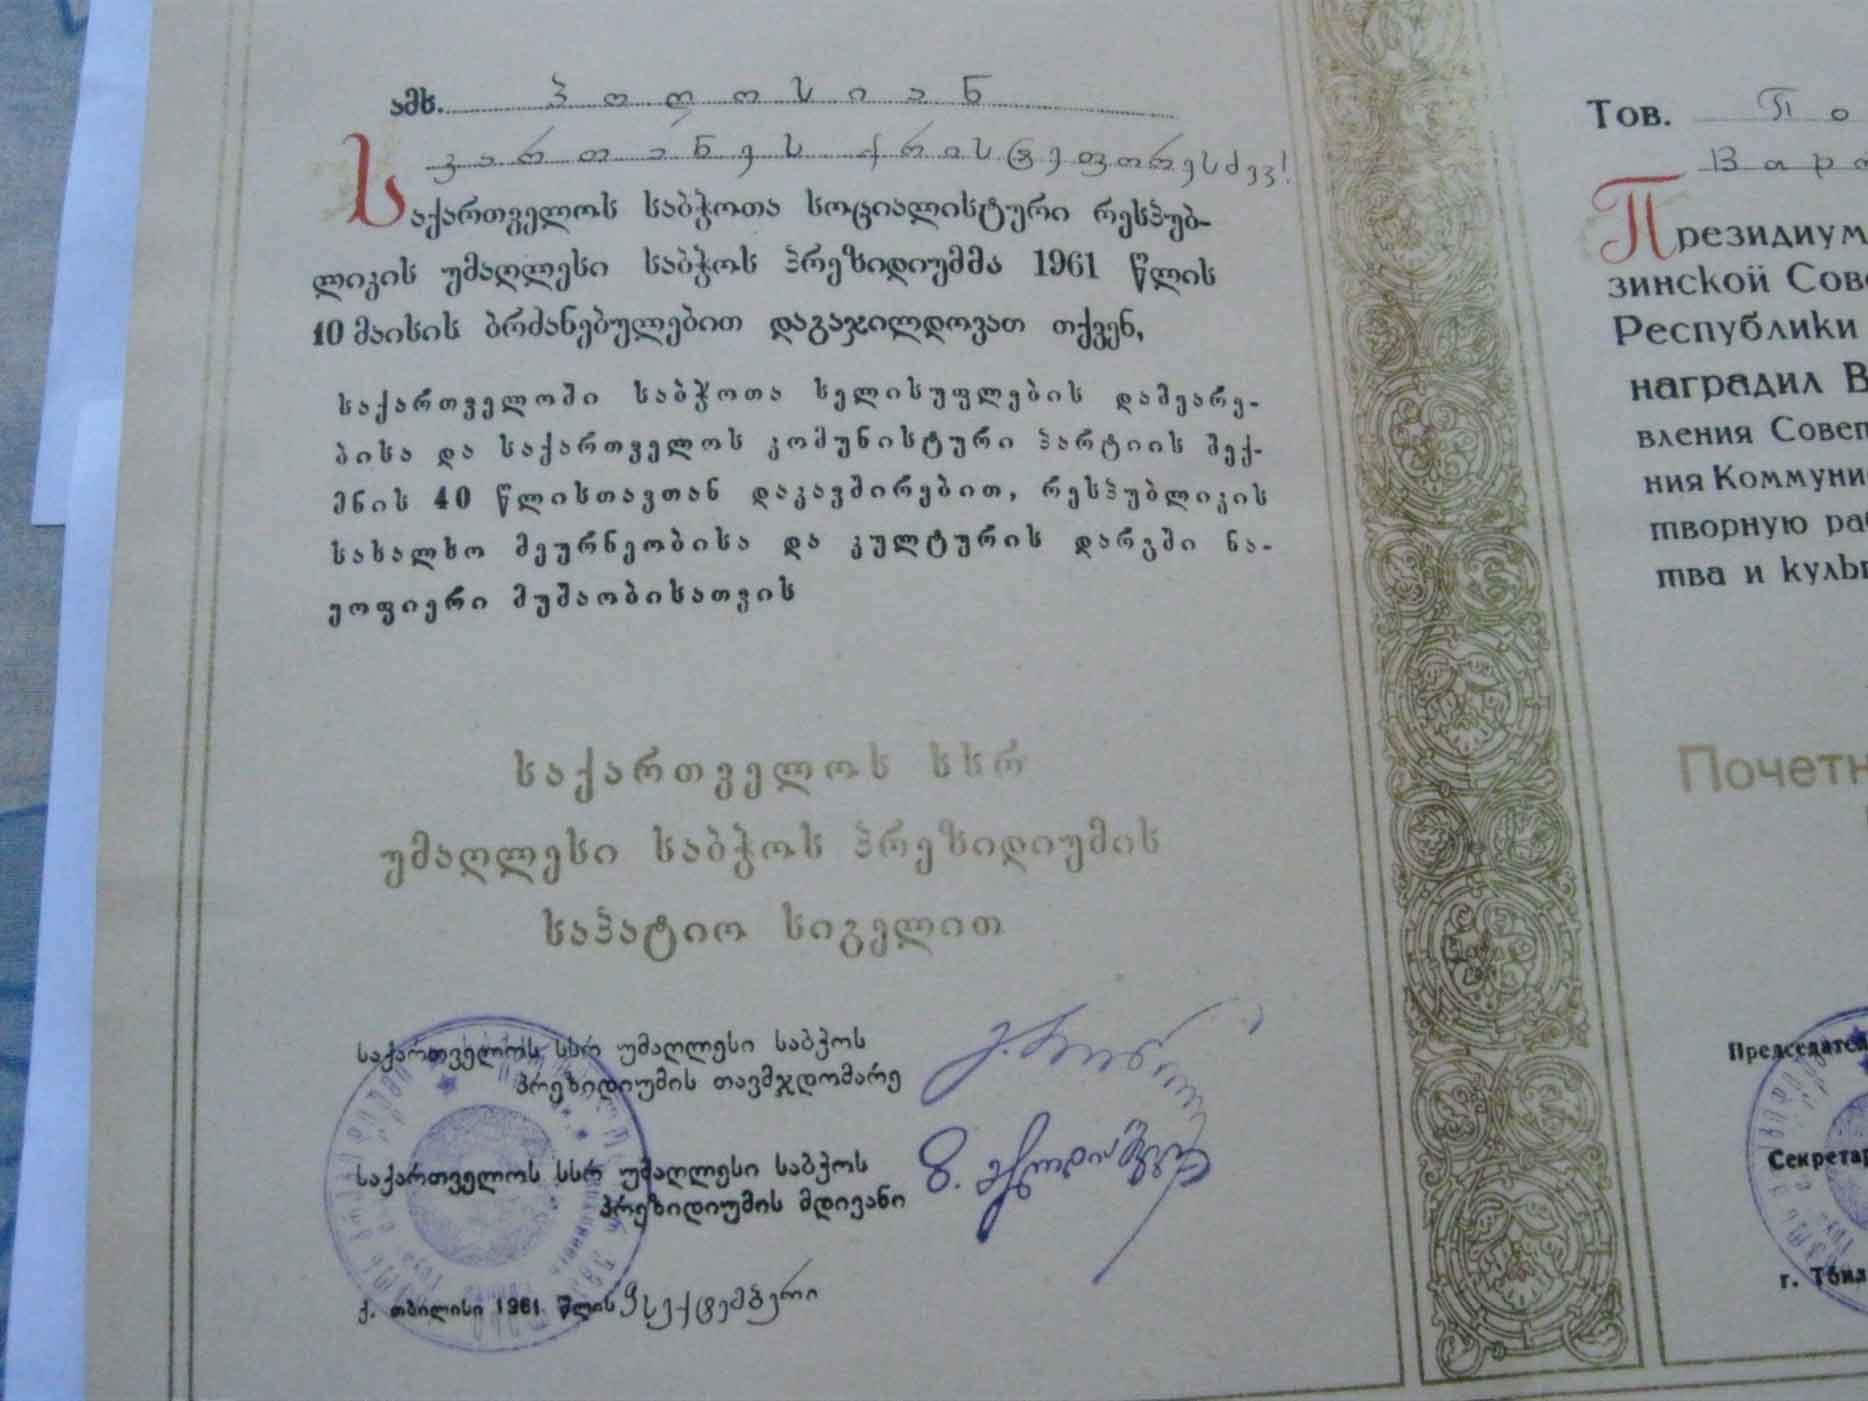 ამხ. პოღოსიან
ვართანეს ქრისტეფორესძევ!
საქართველოს საბჭოთა სოციალისტური რესპუბ-
ლიკის უმაღლესი საბჭოს პრეზიდიუმმა 1961 წლის
10 მაისის ბრძანებულებით დაგაჯილდოვათ თქვენ,
საქართველოში საბჭოთა ხელისუფლების დამყარე-
ბისა და საქართველოს კომუნისტური პარტიის შექ-
მნის 40 წლისთავთან დაკავშირებით, რესპუბლიკის
სახალხო მეურნეობისა და კულტურის დარგში ნა-
ყოფიერი მუშაობისათვის
საქართველოს სსრ
უმაღლესი საბჭოს პრეზიდიუმის
საპატიო სიგელით
საქართველოს სსრ უმაღლესი საბჭოს
პრეზიდიუმის თავმჯდომარე
საქართველოს სსრ უმაღლესი საბჭოს
პრეზიდიუმის მდივანი
ქ. თბილისი 1961 წლის 9 სექტემბერი
Тов. По
Вар
Президиум
зинской Сов
Республики
наградил В
вления Совет
ния Коммуни
творную ра
тва и куль
Почетн
Председател
Секретар
г. Тбил